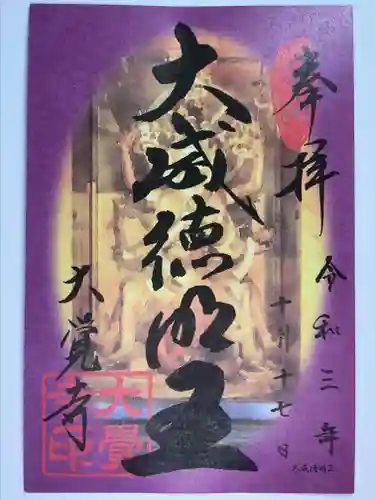 奉拝
令和三年
十月十七日
大威徳明王
大覚寺
大覺寺印
大威徳明王